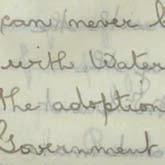 can never
with Water
the adoption
Government